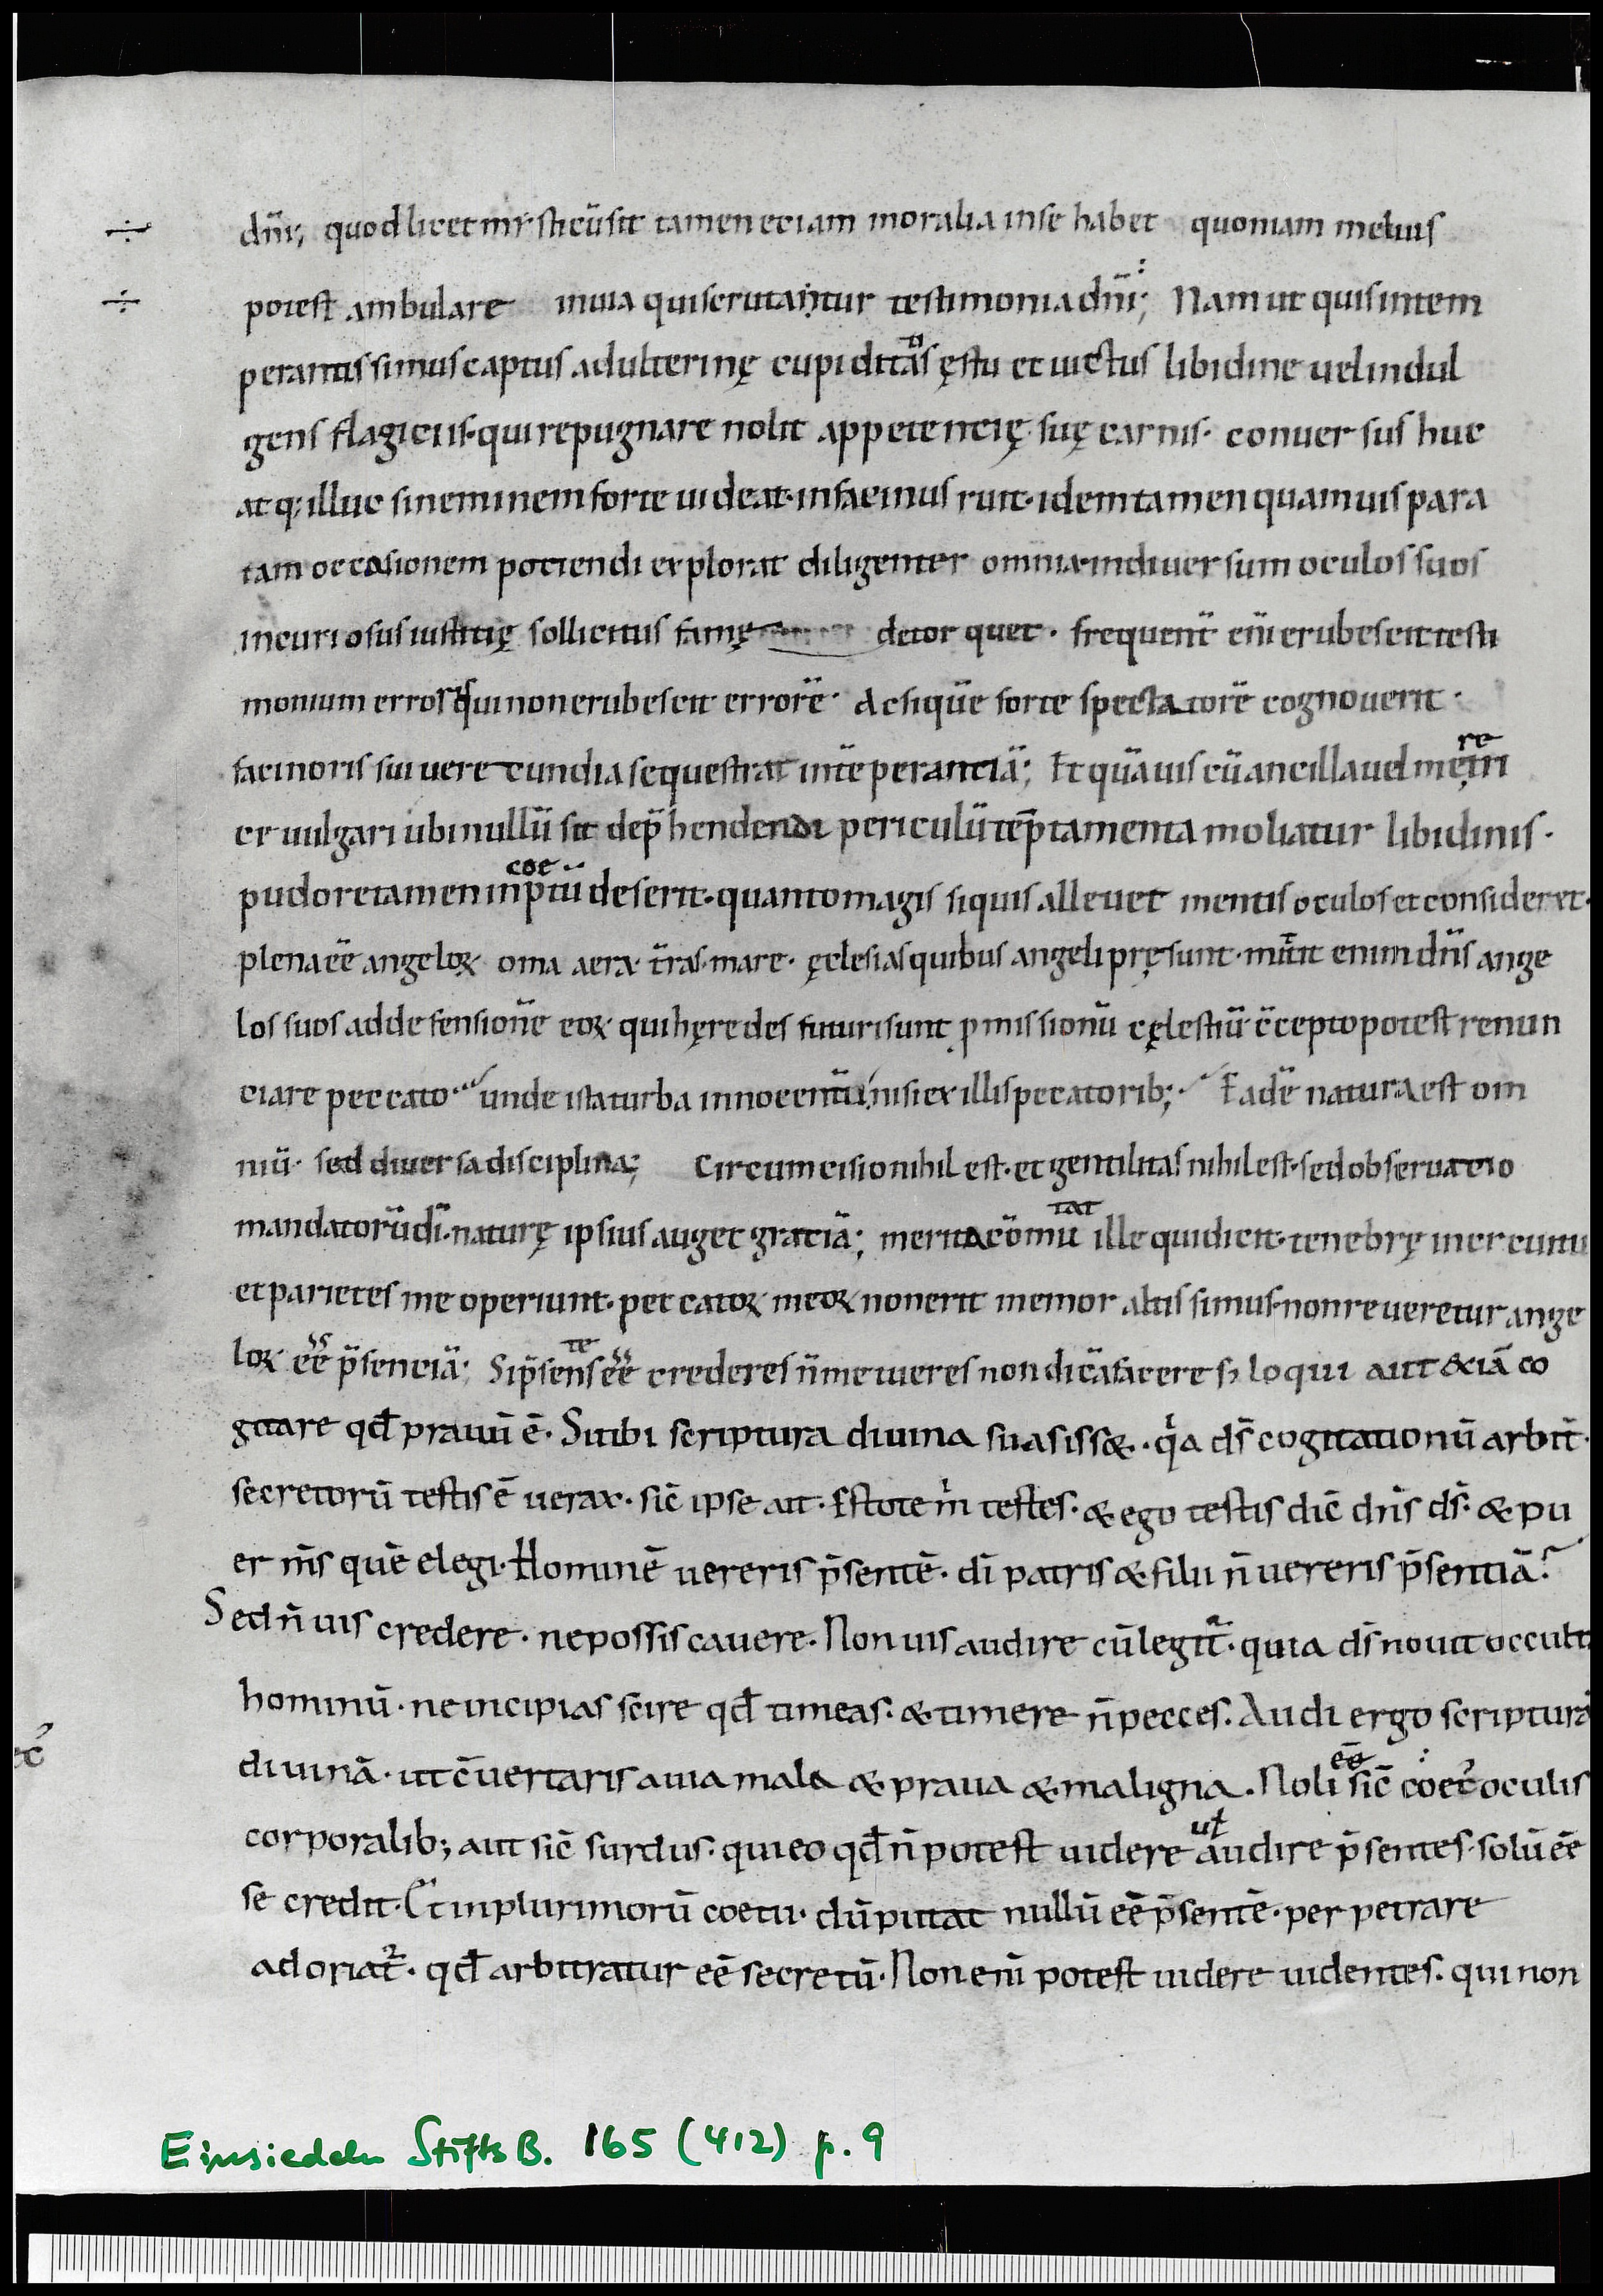 dn̄i; quod licet mysticū sit tamen eciam moralia in se habet quoniam melius
potest ambulare in uia qui scrutantur testimonia dn̄i; Nam ut quis intem
perantissimus captus adulterinę cupiditatis ęstu et uictus libidine uel indul
gens flagiciis· qui repugnare nolit appetencię suę carnis· conuersus huc
atq; illuc si neminem forte uideat· in facinus ruit· idem tamen quamuis para
tam occasionem potiendi explorat diligenter omnia in diuersum oculos suos
incuriosus iustitię sollicitus famę detorquet· frequent̄ enī erubescit testi
monium erroris qui non erubescit errorē· Ac si quē forte spectatorē cognouerit·
facinoris sui uerecundia sequestrat intēperanciā; Et quāuis cū ancilla uel meretri
ce uulgari ubi nullū sit dep̄hendendi periculū tēptamenta moliatur libidinis·
pudore tamen inceptū deserit· quanto magis si quis alleuet mentis oculos et consideret·
plena eē angeloꝝ om̄a aera· t̄ras· mare· ęclesias quibus angeli pręsunt· mittit enim dn̄s ange
los suos ad defensionē eoꝝ qui hęredes futuri sunt ꝓmissionū cęlestiū c̄cepto potest renun
ciare peccato· unde ista turba innocentū nisi ex illis peccatorib;· Eadē natura est om
niū· sed diuersa disciplina; Circumcisio nihil est· et gentilitas nihil est· sed obseruacio
mandatorū dī· naturę ipsius auget gratiā; merita cōmutat ille qui dicit· tenebrę me circu
et parietes me operiunt· peccatoꝝ meoꝝ non erit memor altissimus· non reueretur ange
loꝝ eē p̄senciā; Si p̄sentes eē crederes n̄ metueres non dicā facere sꝫ loqui aut &iā co
gitare qđ prauū ē· Si tibi scriptura diuina suasiss&· q̇a ds̄ cogitationū arbit̄·
secretorū testis ē uerax· sic̄ ipse ait· Estote m̄ testes· & ego testis dic̄ dn̄s ds̄· & pu
er m̄s quē elegi· Hominē uereris p̄sentē· dī patris & filii n̄ uereris p̄sentiā?
Sed n̄ uis credere· ne possis cauere· Non uis audire cū legit̄· quia ds̄ nouit occult
hominū· ne incipias scire qđ timeas· & timere n̄ pecces· Audi ergo scripturā
diuinā· ut c̄uertaris a uia mala & praua & maligna· Noli eē sic̄ coec̓ oculis
corporalib; aut sic̄ surdus· qui eo qđ n̄ potest uidere ut audire p̄sentes· solū eē
se credit· Et in plurimorū coetu· dū putat nullū eē p̄sentē· perpetrare
adoriat̓· qđ arbitratur eē secretū· Non enī potest uidere uidentes· qui non
ec̓
Einsiedeln StiftsB. 165 (412) p. 9